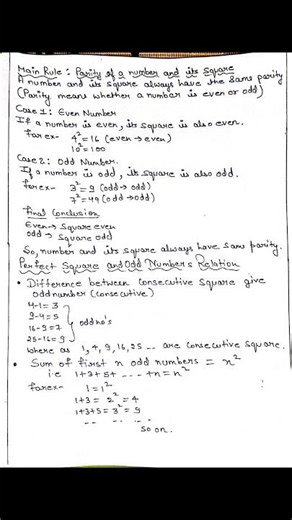 Main Rule : Parity of a number and its square
A number and its square always have the same parity
(Parity means whether a number is even or odd)
Case 1 : Even Number
If a number is even, its square is also even.
For ex- 4² = 16 (even → even)
10² = 100
Case 2 : Odd Number.
If a number is odd, its square is also odd.
For ex- 3² = 9 (odd → odd)
7² = 49 (odd → odd)
Final Conclusion
Even → Square even
odd → Square odd
So, number and its square always have same parity.
Perfect Square and Odd Numbers Relation
• Difference between Consecutive Square give
odd number (consecutive)
4-1 = 3
9-4 = 5
16-9 = 7
25-16 = 9
} odd no's
where as 1, 4, 9, 16, 25 -- are consecutive square.
• Sum of first n odd numbers = n²
i.e 1+3+5+ - - - - +n = n²
for ex- 1 = 1²
1+3 = 2² = 4
1+3+5 = 3² = 9
so on.